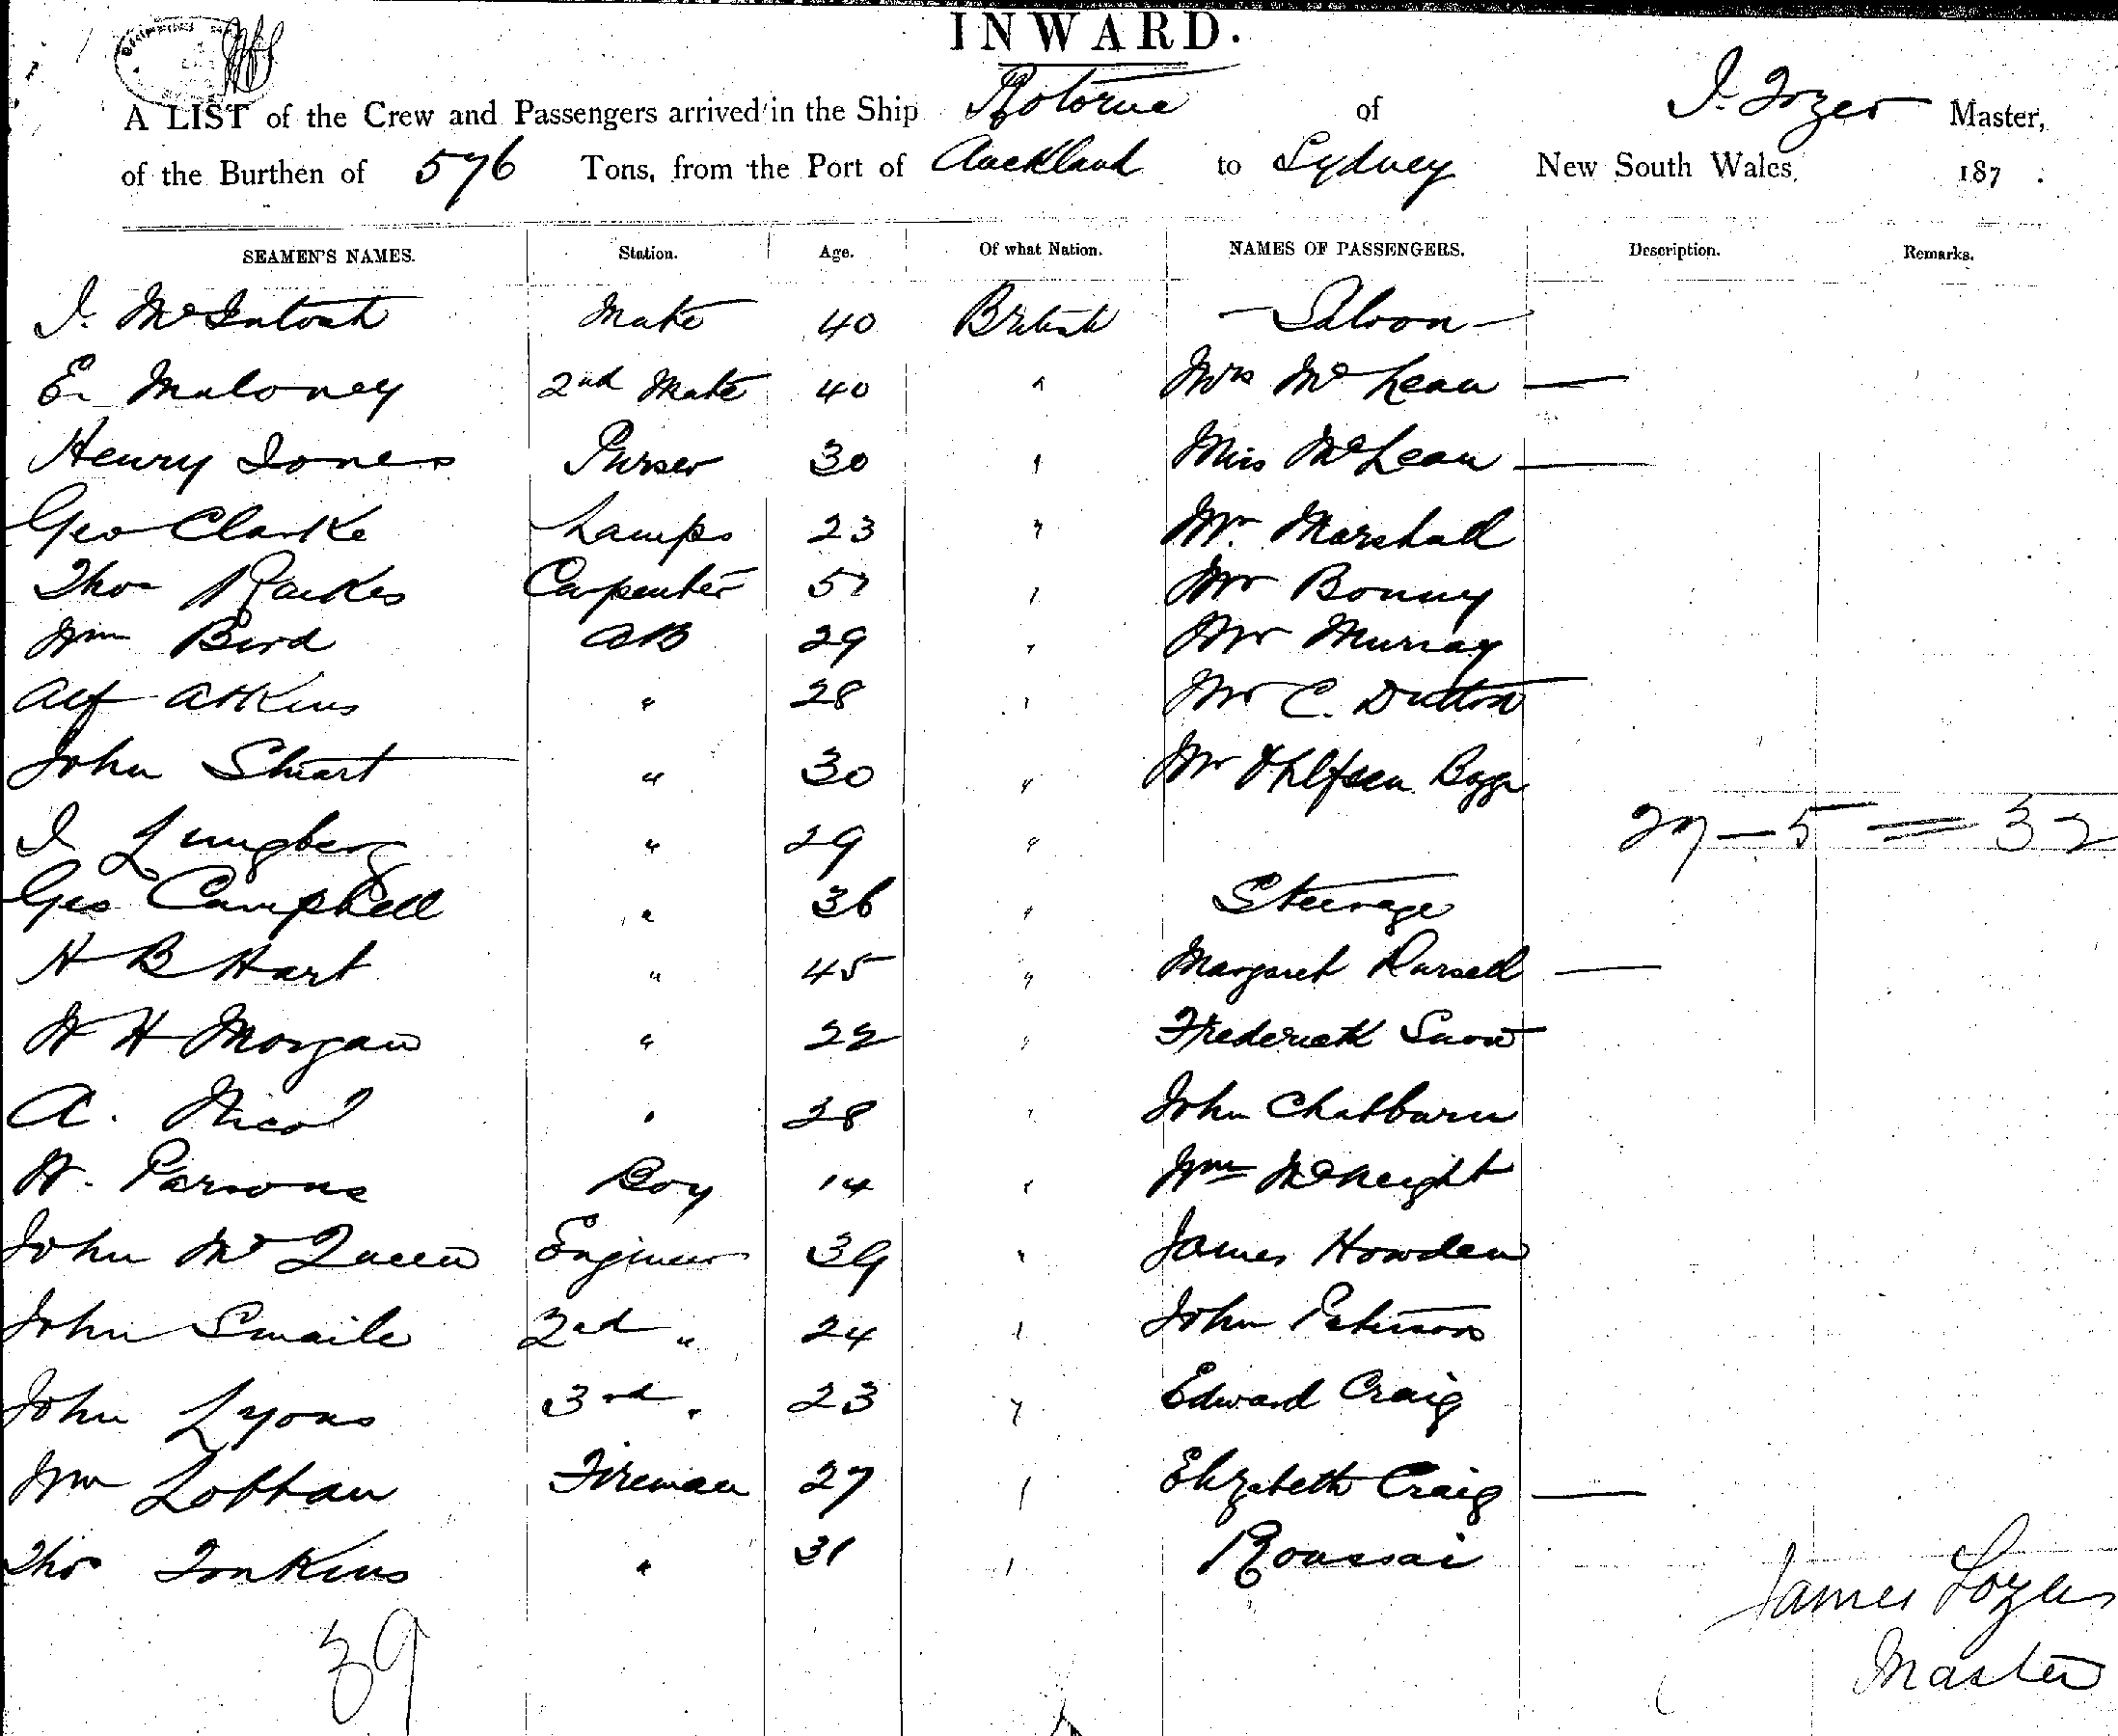 INWARD.
A LIST of the Crew and Passengers arrived in the Ship Rotorua of J. Tozer Master,
of the Burthen of 576 Tons, from the Port of Auckland to Sydney New South Wales, 187 .
SEAMEN'S NAMES. Station. Age. Of what Nation. NAMES OF PASSENGERS. Description. Remarks.
J. McIntosh Mate 40 British - Saloon -
E. Maloney 2nd Mate 40 " Mrs McLean —
Henry Jones Purser 30 " Miss McLean —
Geo Clarke Lamps 23 " Mr. Marshall
Thos Carpenter " Mr Bonny
Wm Bird AB 29 " Mr Murray
Alf Atkins " 28 " Mr C. Dutton
John Stuart " 30 " Mr Ohlfsen Bagge
J Ljungberg " 29 "
27 — 5 = 32
Geo Campbell " 36 " Steerage
H B Hart " 45 " Margaret Russell —
W H Morgan " 22 " Frederick Snow
A. Nicol " 28 " John Chatburn
W. Parsons Boy 14 " Wm McKeight
John McQueen Engineer 39 " James Howden
John Smaile 2nd " 24 " John Paterson
John Lyons 3rd " 23 " Edward Craig
Wm Lobban Fireman 27 " Elizabeth Craig —
Thos Tonkins " 31 " Roussai
39
James Tozer
Master